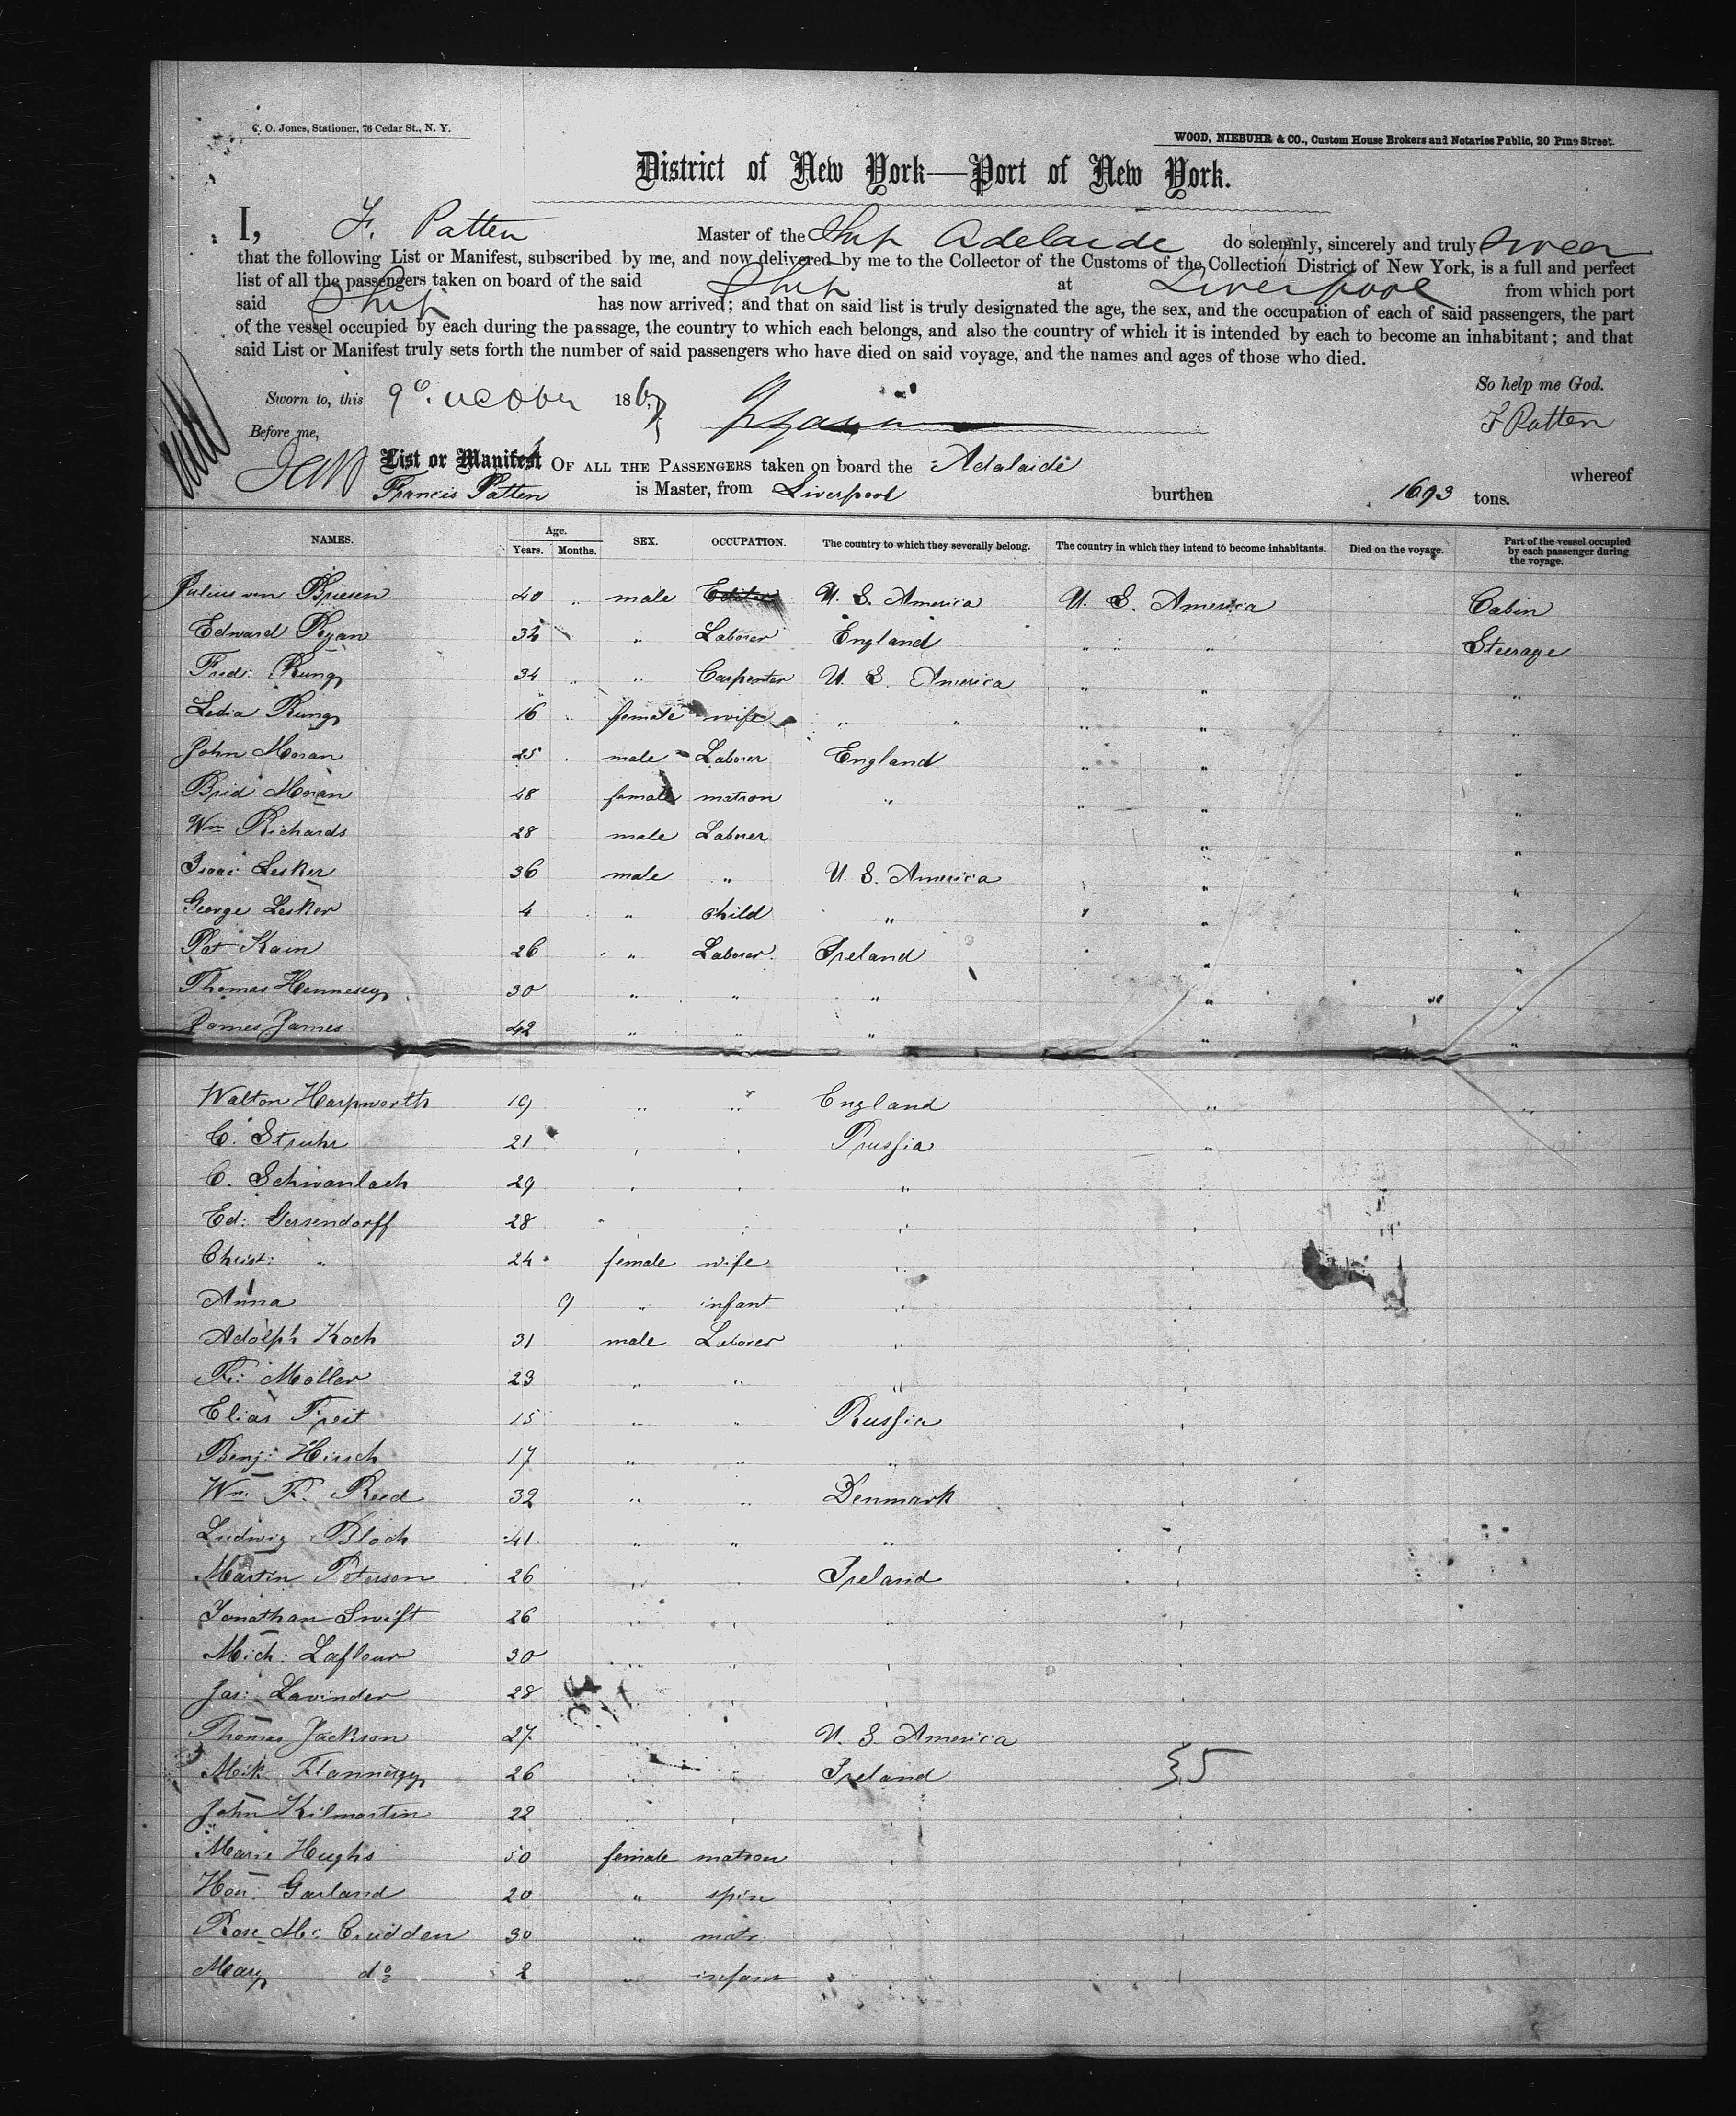 C. O. Jones, Stationer, 76 Cedar St., N. Y.
WOOD, NIEBUHR & CO., Custom House Brokers and Notaries Public, 20 Pine Street.
District of New York—Port of New York.
I, F. Patten Master of the Ship Adelaide do solemnly, sincerely and truly swear
that the following List or Manifest, subscribed by me, and now delivered by me to the Collector of the Customs of the Collection District of New York, is a full and perfect
list of all the passengers taken on board of the said Ship at Liverpool from which port
said Ship has now arrived; and that on said list is truly designated the age, the sex, and the occupation of each of said passengers, the part
of the vessel occupied by each during the passage, the country to which each belongs, and also the country of which it is intended by each to become an inhabitant; and that
said List or Manifest truly sets forth the number of said passengers who have died on said voyage, and the names and ages of those who died.
So help me God.
Sworn to, this 9 October 1867
F Patten
Before me,
List or Manifest OF ALL THE PASSENGERS taken on board the Adalaide whereof
Francis Patten is Master, from Liverpool burthen 1693 tons.
NAMES. Age. Years. Months. SEX. OCCUPATION. The country to which they severally belong. The country in which they intend to become inhabitants. Died on the voyage. Part of the vessel occupied by each passenger during the voyage.
Julius von Briesen 40 male Editor U. S. America U. S. America Cabin
Edward Ryan " Laborer England " " " Steerage
Fred: Rung 34 " Carpenter U. S. America " " "
Ledia Rung 16 female wife " " " " "
John Moran 25 male Laborer England " " "
Brid Moran 48 female matron " " " "
Wm Richards 28 male Laborer " "
Isaac Lesker 36 male " U. S. America " "
George Lesker 4 " child " " " "
Pat Kain 26 " Laborer Ireland " "
Thomas Hennesey 30 " " " " "
James James 42 " " " " "
Walton Harpworth 19 " " England " "
C. Struhr 21 " " Prussia "
C. Schwanlach 29 " " "
Ed: Gersendorff 28 " " " "
Christ: " 24 female wife " "
Anna 9 " infant " "
Adolph Koch 31 male Laborer " "
Fr: Moller 23 " " " "
Elias Freit 15 " " Russia "
Benj: Hirsch 17 " " " "
Wm. F. Reed 32 " " Denmark "
Ludwig Bloch 41 " " " "
Martin Peterson 26 " " Ireland "
Jonathan Swift 26 " " " "
Mich: Lafleur 30 " " " "
Jas: Lavinder 28 " " "
Thomas Jackson 27 U. S. America
Mik Flannery 26 " " Ireland 35
John Kilmartin 22 " " "
Marie Hughs 50 female matron " "
Hon: Garland 20 " spin " "
Rose Mc Cudden 30 " matr " "
Mary do 2 " infant " "